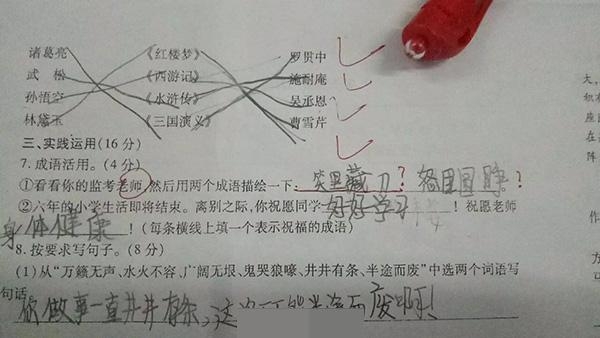 诸葛亮 《红楼梦》 罗贯中
武 松 《西游记》 施耐庵
孙悟空 《水浒传》 吴承恩
林黛玉 《三国演义》 曹雪芹
三、实践运用(16 分)
7. 成语活用。(4 分)
①看看你的监考老师,然后用两个成语描绘一下: 笑里藏刀? ?
②六年的小学生活即将结束。离别之际,你祝愿同学 好好学习 !祝愿老师
身体健康 !(每条横线上填一个表示祝福的成语)
8. 按要求写句子。(8 分)
(1)从“万籁无声、水火不容、广阔无垠、鬼哭狼嚎、井井有条、半途而废”中选两个词语写
句话
你做事一直井井有条,这 废啊!
大,
积
座
在
阵